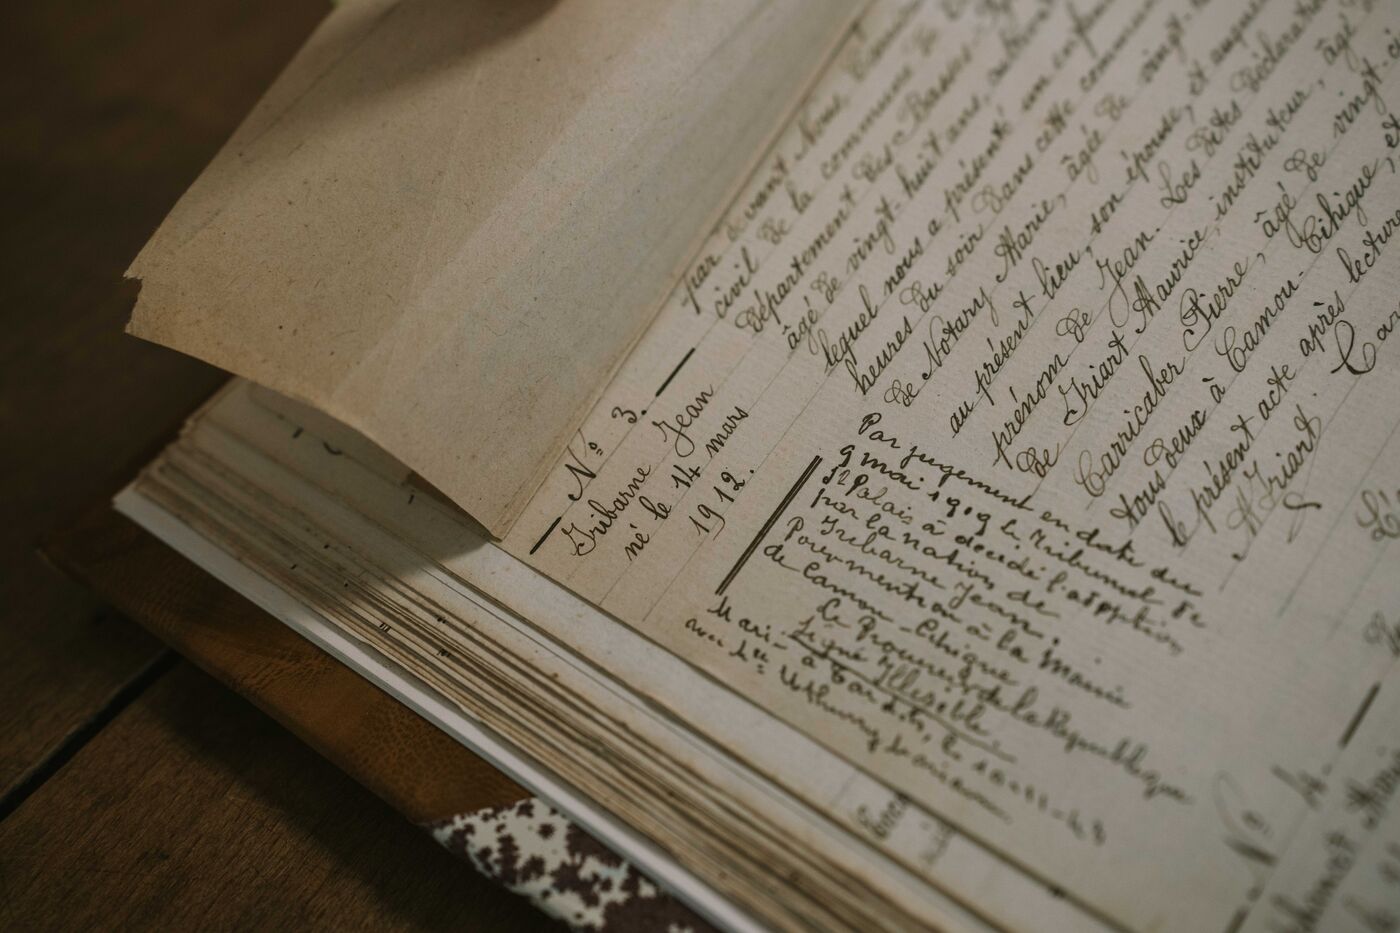 N.º 3.
Iribarne Jean
né le 14 mars
1912.
par devant Nous,
civil de la commune de
département des Basses
âgé de vingt-huit ans,
lequel nous a présenté un enfant
heures du soir dans cette commune
de Notary Marie, âgée de vingt-
au présent lieu, son épouse, et auquel
prénom de Jean. Les dites déclaration
de Iriart Maurice, instituteur, âgé
Carricaber Pierre, âgé de vingt-
tous deux à Camou-Cihigue, et
le présent acte après lecture
H Iriart. Car
Par jugement en date du
9 mai 1919 le Tribunal de
St Palais à décidé l'adoption
par la nation, de
Iribarne Jean.
Pour mention à la Mairie
de Camou-Cihigue
Le Procureur de la République
Signé Illisible.
Marié à Tardets, le
avec
N.º 4.